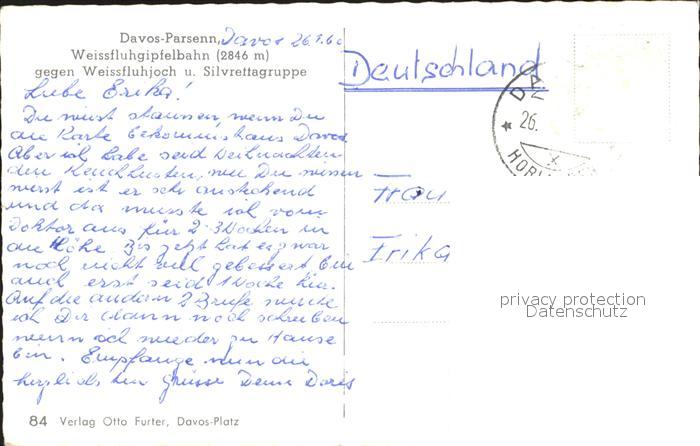 Davos-Parsenn, Davos 26.1.60
Weissfluhgipfelbahn (2846 m)
gegen Weissfluhjoch u. Silvrettagruppe
Deutschland
Liebe Erika!
Du wirst staunen, wenn Du
die Karte bekommst aus Davos
Aber ich habe seid Weihnachten
den Keuchhusten, wie Du wissen
wirst ist er sehr ansteckend
und da musste ich vom
Doktor aus für 2-3 Wochen in
die Höhe. Bis jetzt hat es zwar
noch nicht viel gebessert. Bin
auch erst seid 1 Woche hier.
Auf die andern 2 Briefe werde
ich Dir dann noch schreiben
wenn ich wieder zu Hause
bin. Empfange nun die
herzlichsten Grüsse Deine Doris
Frau
Erika
DAV
26.
HORI
privacy protection
Datenschutz
84 Verlag Otto Furter, Davos-Platz